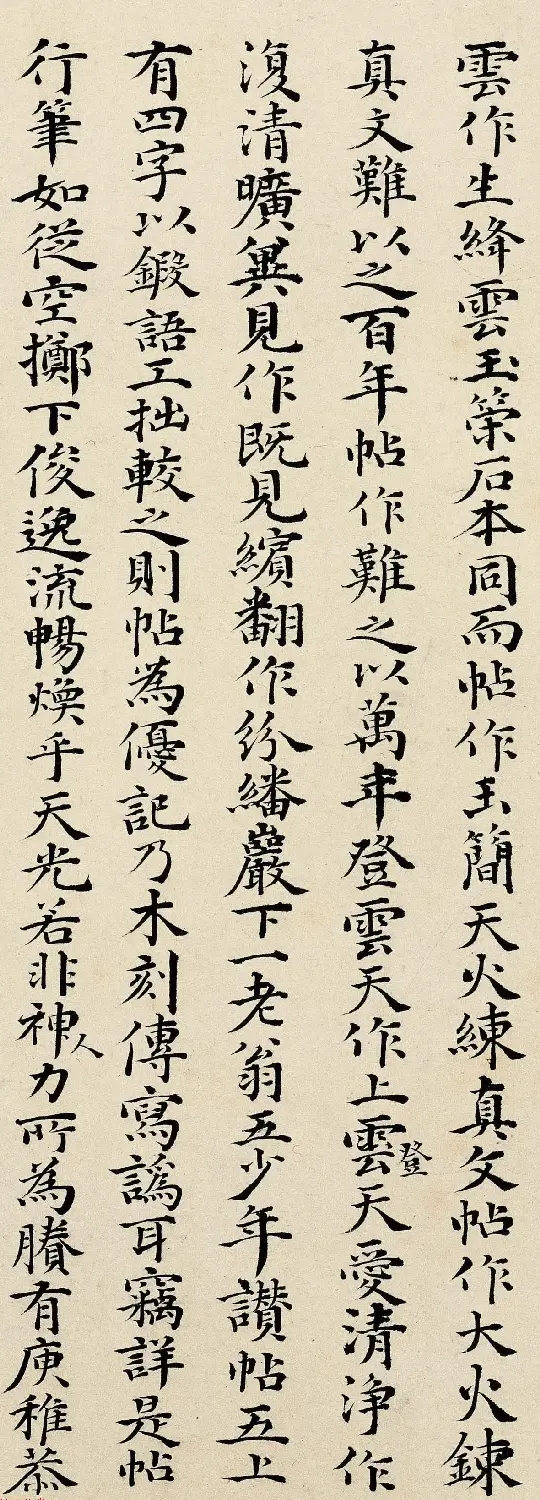 雲作生絳雲玉策石本同而帖作玉簡天火練真文帖作大火鍊
真文難以之百年帖作難之以萬年登雲天作上雲登天愛清淨作
復清曠異見作既見繽翻作紛繙巖下一老翁五少年讚帖五上
有四字以鍛語工拙較之則帖為優記乃木刻傳寫譌耳竊詳是帖
行筆如從空擲下俊逸流暢煥乎天光若非神人力所為賸有庾稚恭